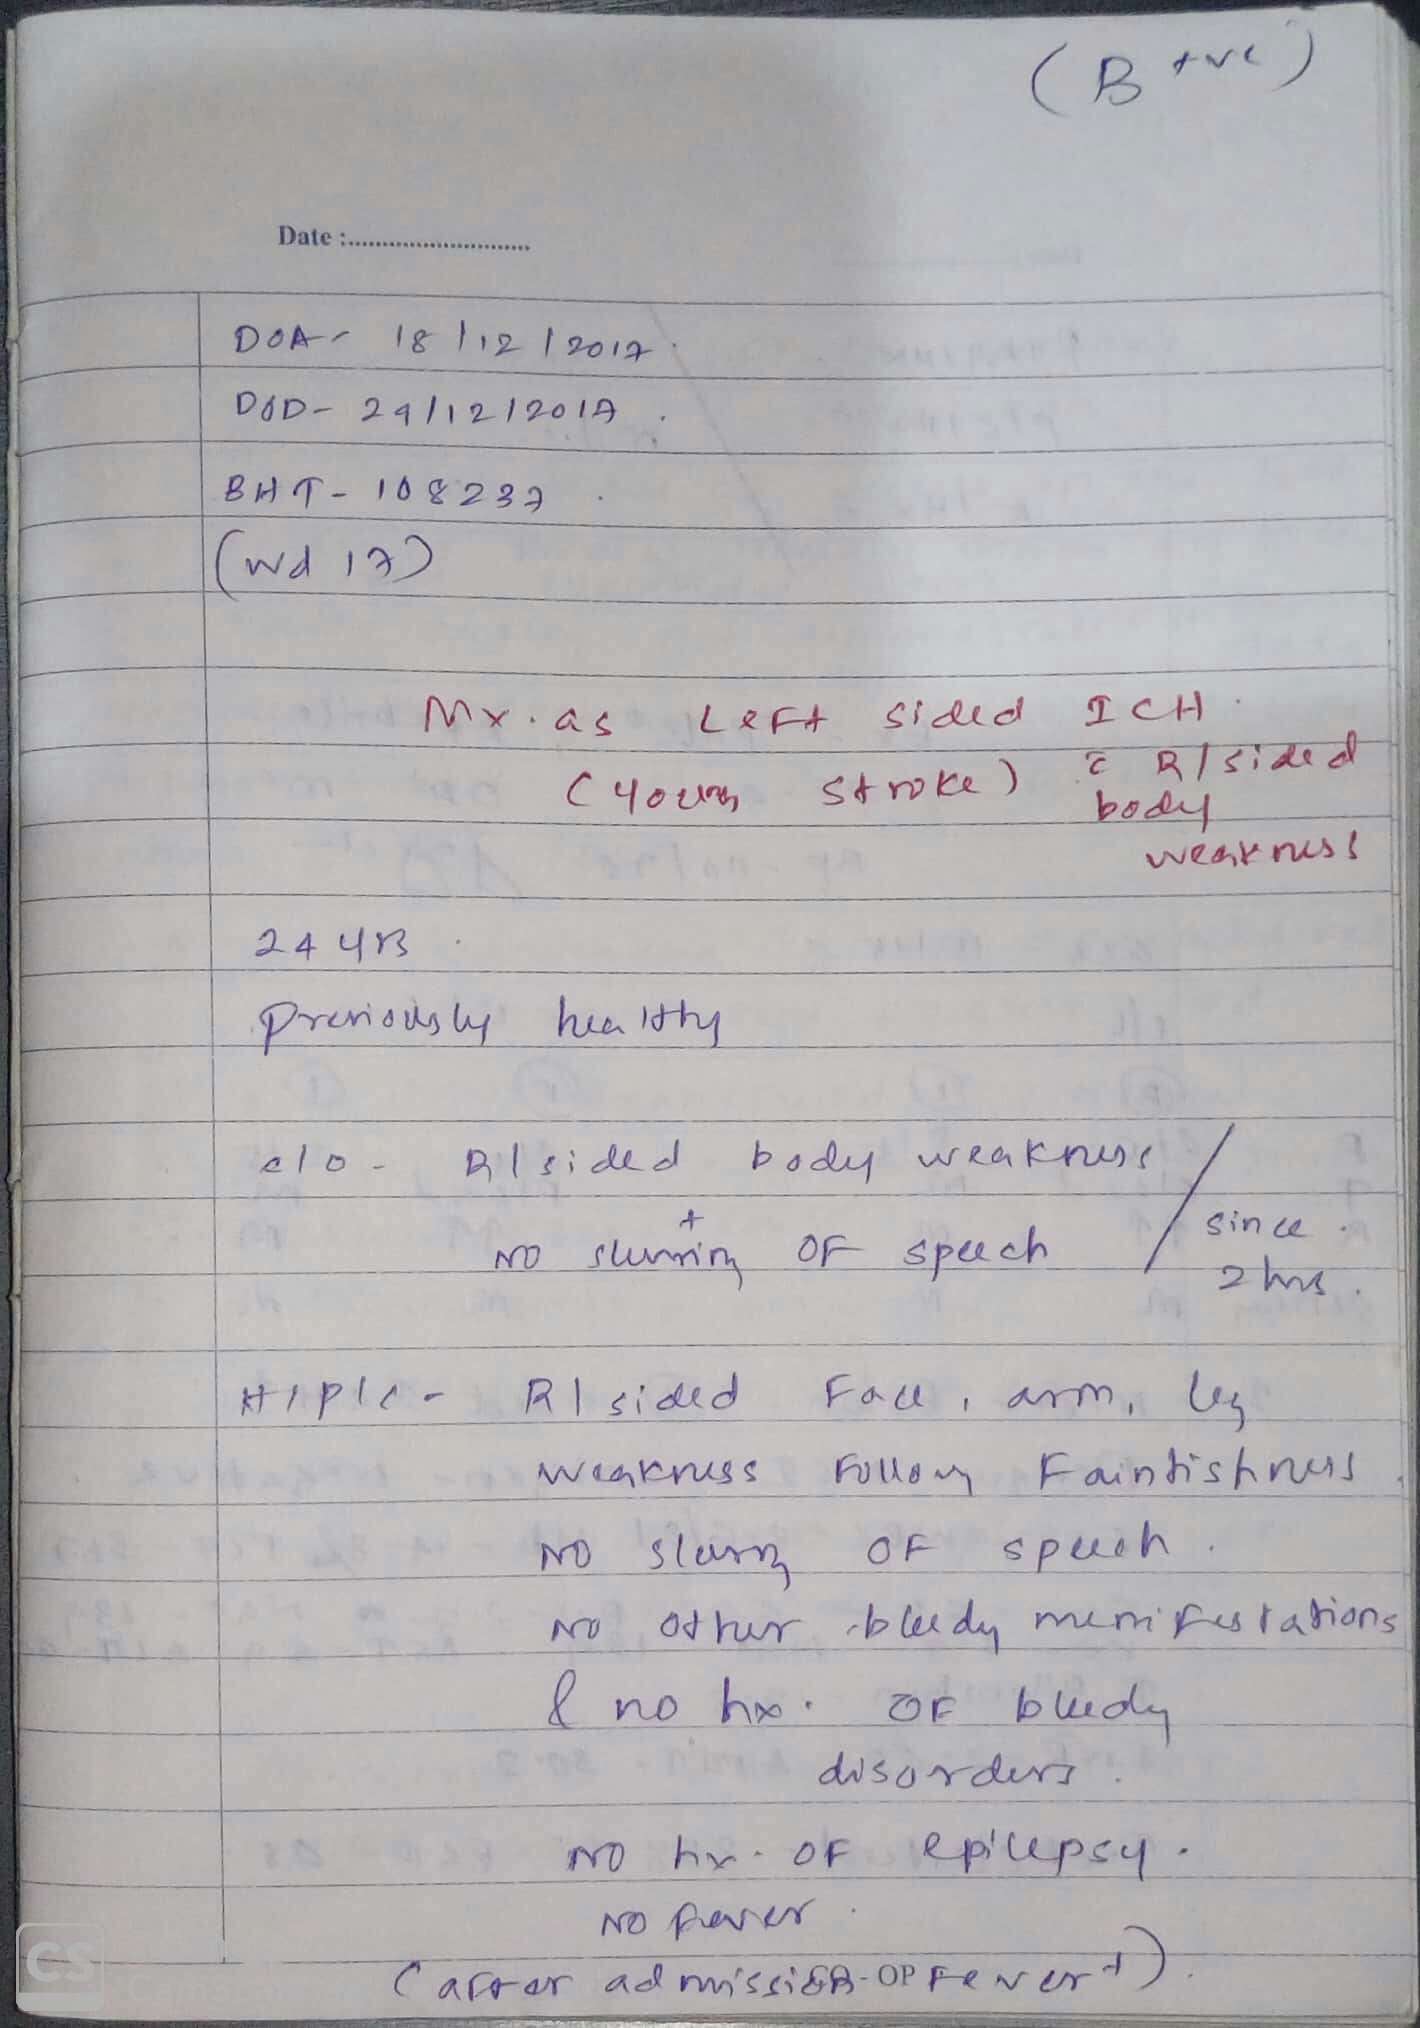 (B +ve)
Date :............................
DOA - 18/12/2017.
DOD - 29/12/2017.
BHT - 108237.
(Wd 17)
Mx. as Left sided ICH.
(young stroke) c̄ R/sided
body
weakness
24 yrs.
previously healthy
c/o - R/sided body weakness
+
NO slurring OF speech / since
2 hrs.
H/P/C - R/sided Face, arm, leg
weakness Following Faintishness.
NO slurring OF speech.
NO other bleeding manifestations
& no hx. OF bleeding
disorders.
NO hx. OF epilepsy.
NO fever.
(after admission Fever +).
-OP
CS